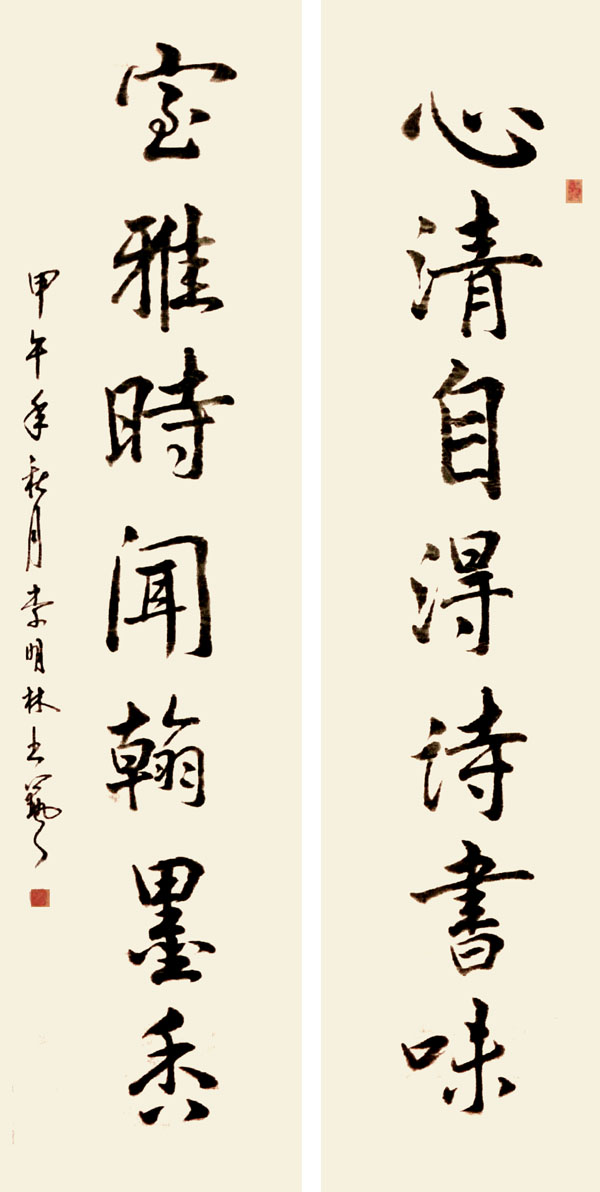 心清自得诗書味
室雅時闻翰墨香
甲午年秋月李明林